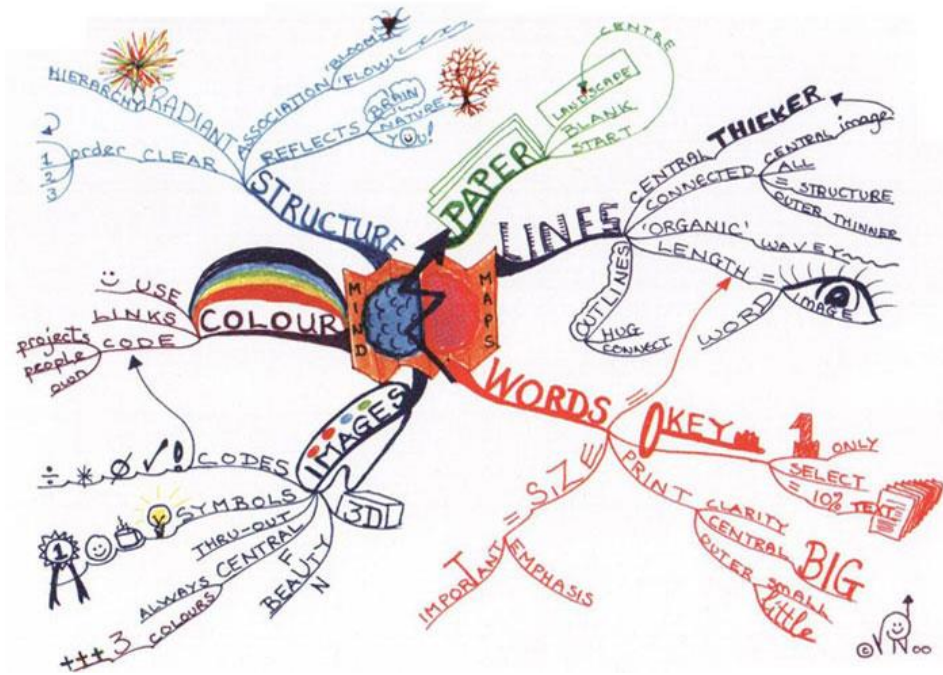 MIND MAPS
STRUCTURE
RADIANT
HIERARCHY
CLEAR
order
1
2
3
ASSOCIATION
'BLOOM'
'FLOW'
REFLECTS
BRAIN
NATURE
YOU!
PAPER
CENTRE
LANDSCAPE
BLANK
START
LINES
CENTRAL THICKER
CONNECTED
CENTRAL image
ALL
= STRUCTURE
OUTER THINNER
'ORGANIC'
WAVEY
LENGTH
=
WORD
IMAGE
OUTLINES
HUG
CONNECT
WORDS
=
KEY
1 ONLY
SELECT
= 10% TEXT
PRINT
CLARITY
CENTRAL BIG
OUTER SMALL
little
SIZE
=
IMPORTANT
EMPHASIS
IMAGES
3D
CODES
! ✓ ø * ÷
SYMBOLS
1
THRU-OUT
CENTRAL
ALWAYS
COLOURS
3 +++
BEAUTY
FUN
COLOUR
USE
LINKS
CODE
projects
people
own